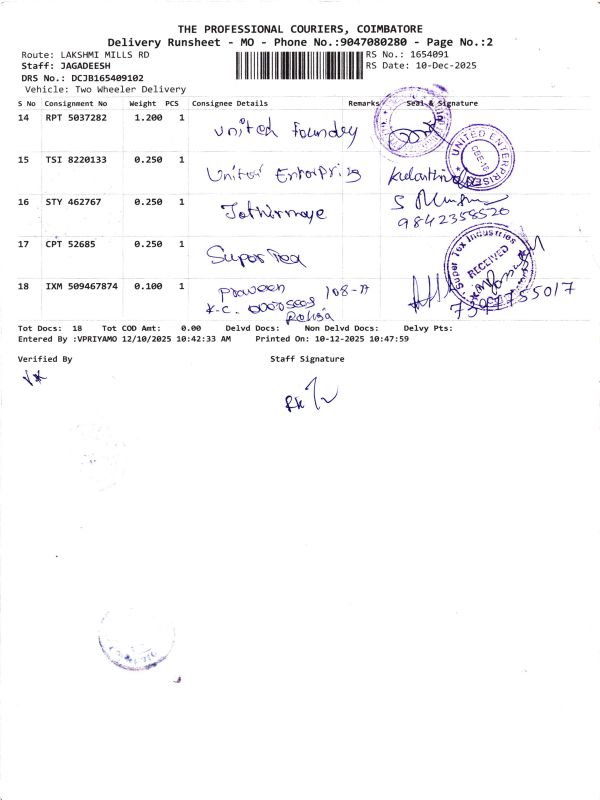 THE PROFESSIONAL COURIERS, COIMBATORE
Delivery Runsheet - MO - Phone No.:9047080280 - Page No.:2
Route: LAKSHMI MILLS RD RS No.: 1654091
Staff: JAGADEESH RS Date: 10-Dec-2025
DRS No.: DCJB165409102
Vehicle: Two Wheeler Delivery
S No Consignment No Weight PCS Consignee Details Remarks Seal & Signature
14 RPT 5037282 1.200 1 United Foundry
15 TSI 8220133 0.250 1 United Enterprises
UNITED ENTERPRISES
CBE-18
16 STY 462767 0.250 1
9842358520
17 CPT 52685 0.250 1 Super Tea
Super Tex Industries
RECEIVED
18 IXM 509467874 0.100 1 Praveen 108-A
K.C.
7397755017
Tot Docs: 18 Tot COD Amt: 0.00 Delvd Docs: Non Delvd Docs: Delvy Pts:
Entered By :VPRIYAMO 12/10/2025 10:42:33 AM Printed On: 10-12-2025 10:47:59
Verified By Staff Signature